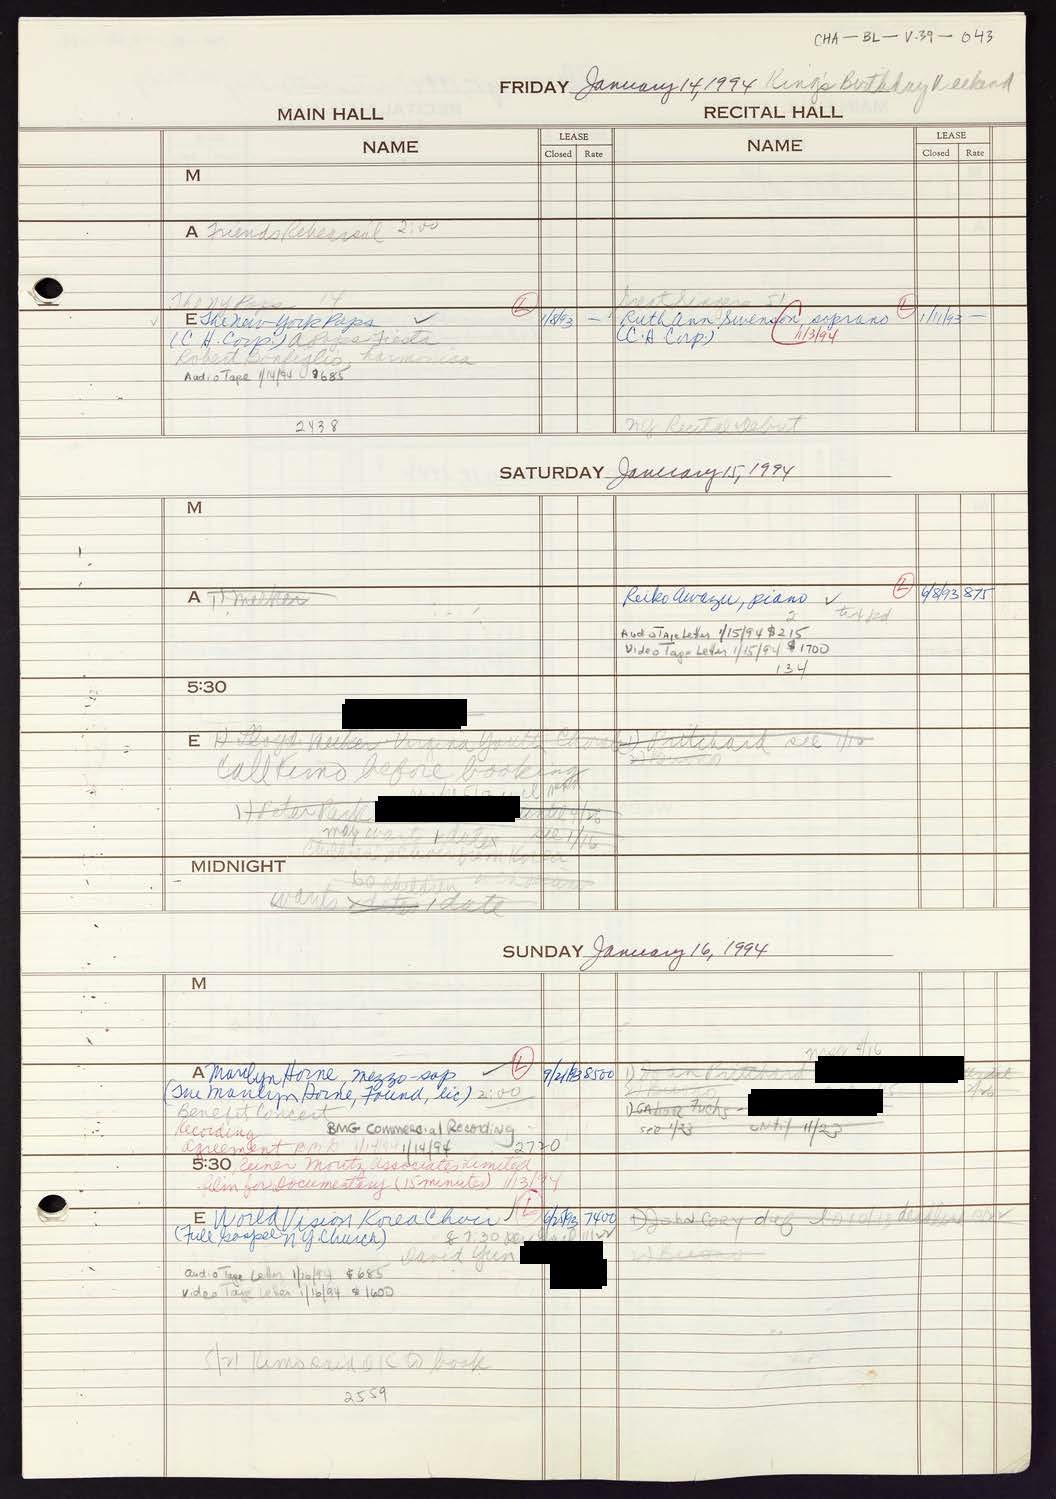 CHA-BL-V.39-043
FRIDAY January 14, 1994 King's Birthday Weekend
MAIN HALL
RECITAL HALL
NAME
LEASE
Closed Rate
NAME
LEASE
Closed Rate
M
A Friends Rehearsal 2:00
The NY Pops 14
E The New York Pops ✓ L 1/8/93 —
(C.H. Corp.) A Pops Fiesta
Robert Bonfiglio, harmonica
Audio Tape 1/14/94 $685
2438
Ruth Ann Swenson, soprano L 1/11/93 —
(C.H. Corp.) 1/3/94
NY Recital Debut
SATURDAY January 15, 1994
M
A
Reiko Awazu, piano ✓ L 6/8/93 875
2
Audio Tape Letter 1/15/94 $215
Video Tape Letter 1/15/94 $1700
134
5:30
E 1) Lloyd Virginia Youth
Call Kimo before booking
1) Peter Park
may want 1 date see 1/16
Children's Choir from Korea
1) Pritchard see 1/16
MIDNIGHT
60 children
wants dates 1 date
SUNDAY January 16, 1994
M
A Marilyn Horne, mezzo-sop ✓ L 9/21/93 8500
(The Marilyn Horne, Found, llc) 2:00
Benefit Concert
Recording BMG Commercial Recording
agreement 1/14/94 2720
Pritchard
1) Gabor Fuchs -
see 1/23 until 11/23
5:30 Reiner Moritz Associates Limited
film for Documentary (15 minutes) 1/13/94
E World Vision Korea Choir L 6/25/93 7400
(Full Gospel NY Church) 7:30
David Yun
Audio Tape Letter 1/16/94 $685
Video Tape Letter 1/16/94 $1600
1) John Cory
2) Bueno
5/21 Kimo said OK to book
2559